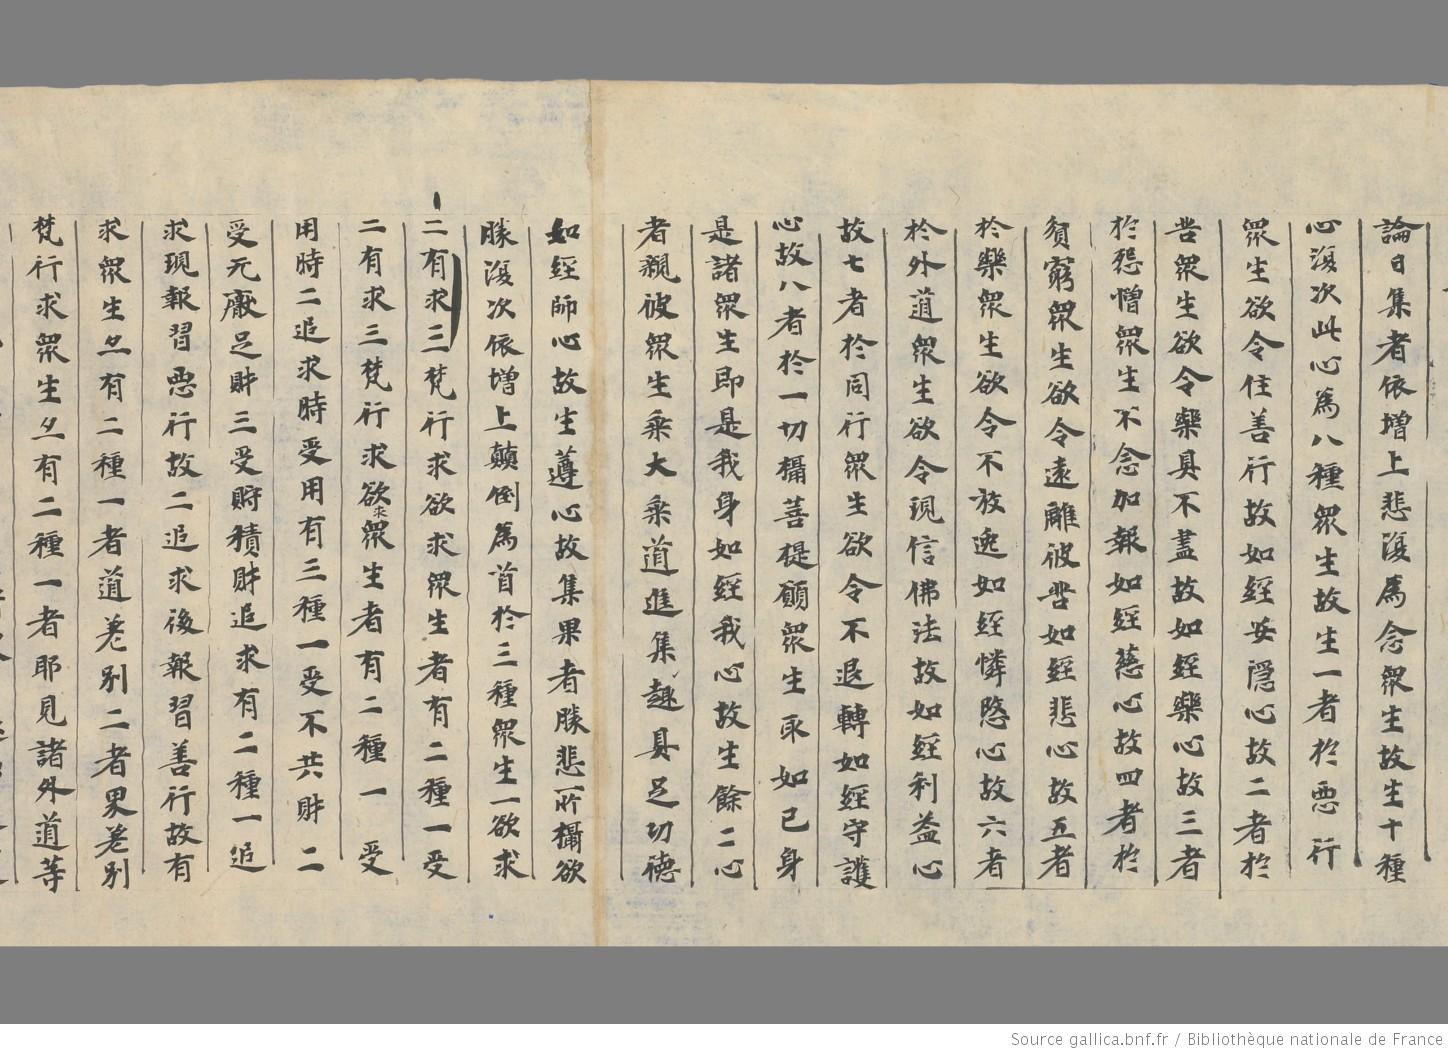 論曰集者依增上悲復為念眾生故生十種
心復次此心為八種眾生故生一者於惡行
眾生欲令住善行故如經安隱心故二者於
苦眾生欲令樂具不盡故如經樂心故三者
於怨憎眾生不念加報如經慈心故四者於
貧窮眾生欲令遠離彼苦如經悲心故五者
於樂眾生欲令不放逸如經憐愍心故六者
於外道眾生欲令現信佛法故如經利益心
故七者於同行眾生欲令不退轉如經守護
心故八者於一切攝菩提願眾生取如己身
是諸眾生即是我身如經我心故生餘二心
者觀彼眾生乘大乘道進集趣具足功德
如經師心故生尊心故集果者勝悲所攝欲
勝復次依增上顛倒為首於三種眾生一欲求
二有求三梵行求欲求眾生者有二種一受
二有求三梵行求欲求眾生者有二種一受
用時二追求時受用有三種一受不共財二
受无厭足財三受貯積財追求有二種一追
求現報習惡行故二追求後報習善行故有
求眾生亦有二種一者道差別二者界差別
梵行求眾生亦有二種一者耶見諸外道等
Source gallica.bnf.fr / Bibliothèque nationale de France